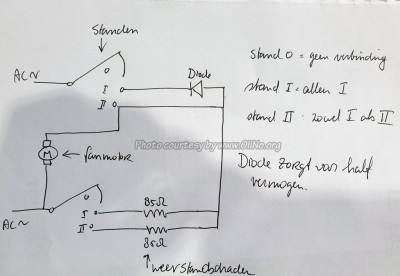 Standen
AC~
O
I
II
Diode
stand O = geen verbinding
stand I = alleen I
stand II = zowel I als II
Photo courtesy by www.OliNo.org
M
fanmotor
Diode zorgt voor half
vermogen.
AC~
O
I
II
85Ω
85Ω
weerstandsdraden